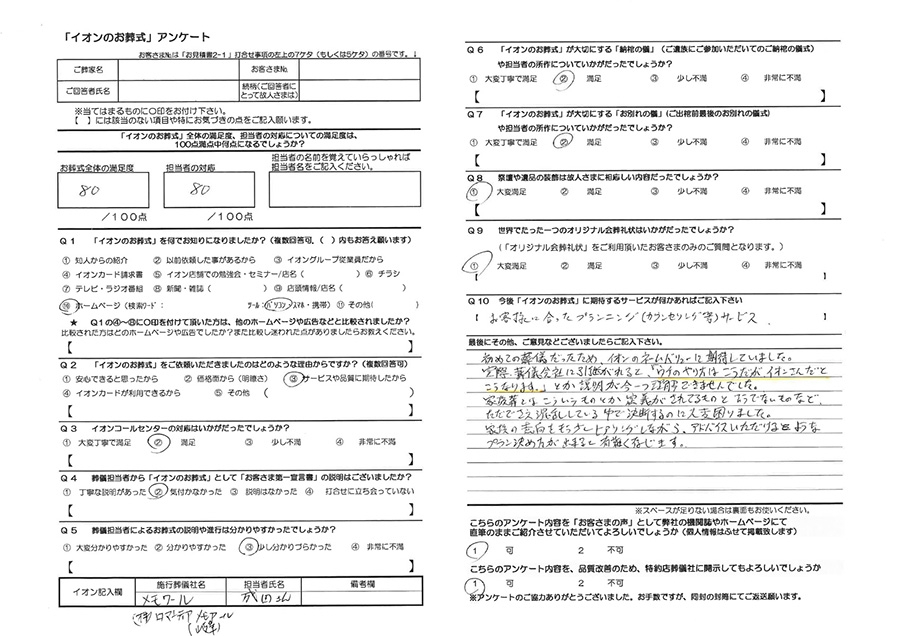 「イオンのお葬式」アンケート
お客さま№は「お見積書2-1」打合せ事項の左上の7ケタ（もしくは5ケタ）の番号です。↓
ご葬家名 お客さま№
ご回答者氏名 続柄(ご回答者にとって故人さまは)
※当てはまるものに○印をお付け下さい。
【　】には該当のない項目や特にお気づきの点をご記入願います。
「イオンのお葬式」全体の満足度、担当者の対応についての満足度は、
100点満点中何点になるでしょうか？
お葬式全体の満足度 担当者の対応 担当者の名前を覚えていらっしゃれば
担当者名をご記入ください。
80 80
／100点 ／100点
Q1 「イオンのお葬式」を何でお知りになりましたか？（複数回答可、（　）内もお答え願います）
① 知人からの紹介 ② 以前依頼した事があるから ③ イオングループ従業員だから
④ イオンカード請求書 ⑤ イオン店舗での勉強会・セミナー/店名（　） ⑥ チラシ
⑦ テレビ・ラジオ番組 ⑧ 新聞・雑誌（　） ⑨ 店頭情報/店名（　）
⑩ ホームページ（検索ワード： ツール：パソコン・スマホ・携帯） ⑪ その他（　）
★ Q1の④～⑩に○印を付けて頂いた方は、他のホームページや広告などと比較されましたか？
比較された方はどのホームページや広告でしたか？また比較し迷われた点がありましたらお教えください。
【　】
Q2 「イオンのお葬式」をご依頼いただきましたのはどのような理由からですか？（複数回答可）
① 安心できると思ったから ② 価格面から（明瞭さ） ③ サービスや品質に期待したから
④ イオンカードが利用できるから ⑤ その他（　）
【　】
Q3 イオンコールセンターの対応はいかがだったでしょうか？
① 大変丁寧で満足 ② 満足 ③ 少し不満 ④ 非常に不満
【　】
Q4 葬儀担当者から「イオンのお葬式」として「お客さま第一宣言書」の説明はございましたか？
① 丁寧な説明があった ② 気付かなかった ③ 説明はなかった ④ 打合せに立ち会っていない
【　】
Q5 葬儀担当者によるお葬式の説明や進行は分かりやすかったでしょうか？
① 大変分かりやすかった ② 分かりやすかった ③ 少し分かりづらかった ④ 非常に不満
【　】
イオン記入欄 施行葬儀社名 担当者氏名 備考欄
メモワール
Q6 「イオンのお葬式」が大切にする「納棺の儀」（ご遺族にご参加いただいてのご納棺の儀式）
や担当者の所作についていかがだったでしょうか？
① 大変丁寧で満足 ② 満足 ③ 少し不満 ④ 非常に不満
【　】
Q7 「イオンのお葬式」が大切にする「お別れの儀」（ご出棺前最後のお別れの儀式）
や担当者の所作についていかがだったでしょうか？
① 大変丁寧で満足 ② 満足 ③ 少し不満 ④ 非常に不満
【　】
Q8 祭壇や遺品の装飾は故人さまに相応しい内容だったでしょうか？
① 大変満足 ② 満足 ③ 少し不満 ④ 非常に不満
【　】
Q9 世界でたった一つのオリジナル会葬礼状はいかがだったでしょうか？
（「オリジナル会葬礼状」をご利用頂いたお客さまのみのご質問となります。）
① 大変満足 ② 満足 ③ 少し不満 ④ 非常に不満
【　】
Q10 今後「イオンのお葬式」に期待するサービスが何かあればご記入下さい
【お客様に合ったプランニング(カウンセリング等)サービス】
最後にその他、ご意見などございましたらご記入下さい。
初めての葬儀だったため、イオンのネームバリューに期待していました。
実際、葬儀会社に引継がれると、「ウチのやり方はこうだが、イオンさんだと
こうなります。」とか説明が今一つ理解できませんでした。
家族葬とはこういうものとか定義がされてるものとそうでないものなど、
ただでさえ混乱している中で決断するのに大変困りました。
プラン決め方が出来ると有難く存じます。
※スペースが足りない場合は裏面もお使いください。
こちらのアンケート内容を「お客さまの声」として弊社の機関誌やホームページにて
直筆のままご紹介させていただいてよろしいでしょうか（個人情報はふせて掲載致します）
1 可 2 不可
こちらのアンケート内容を、品質改善のため、特約店葬儀社に開示してもよろしいでしょうか
1 可 2 不可
※アンケートのご協力ありがとうございました。お手数ですが、同封の封筒にてご返送願います。